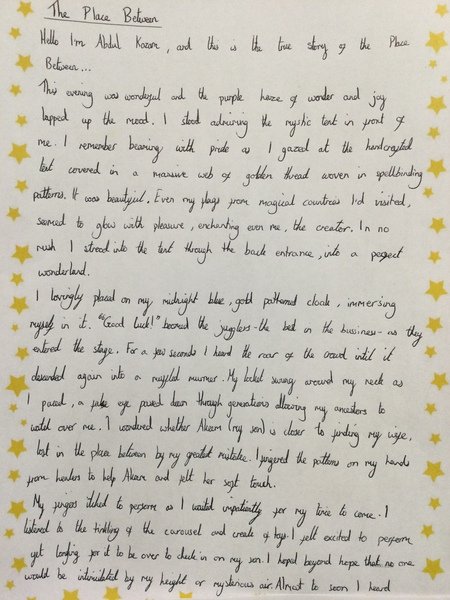 The Place Between
Hello I'm Abdul Kazam, and this is the true story of the Place
Between...
This evening was wonderful and the purple haze of wonder and joy
lapped up the mood. I stood admiring the mystic tent in front of
me. I remember beaming with pride as I gazed at the handcrafted
tent covered in a massive web of golden thread woven in spellbinding
patterns. It was beautiful. Even my flags from magical countries I'd visited,
seemed to glow with pleasure, enchanting even me, the creator. In no
rush I strood into the tent through the back entrance, into a perfect
wonderland.
I lovingly placed on my, midnight blue, gold patterned cloak, immersing
myself in it. "Good luck!" boomed the jugglers - the best in the bussiness - as they
entered the stage. For a few seconds I heard the roar of the crowd until it
descended again into a muffled murmer. My locket swung around my neck as
I paced, a eye passed down through generations allowing my ancestors to
watch over me. I wondered whether Akeem (my son) is closer to finding my wife,
lost in the place between by my greatest mistake. I fingered the patterns on my hands
from healers to help Akeem and felt her soft touch.
My fingers itched to perform as I waited impatiently for my time to come. I
listened to the tinkling of the carousel and create of toys. I felt excited to perform
yet longing for it to be over to check in on my son. I hoped beyond hope that no one
would be intimidated by my height or mysterious air. Almost to soon I heard